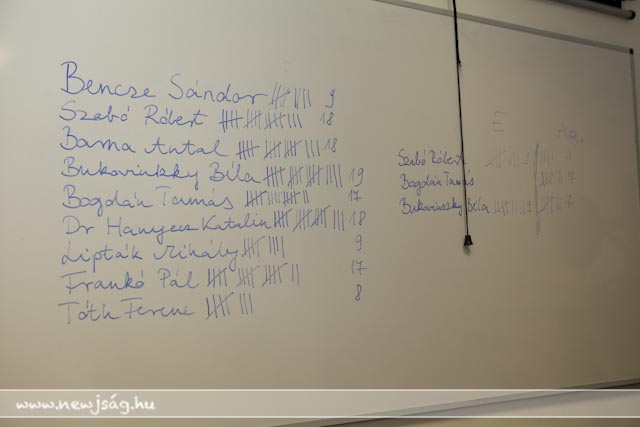 Bencze Sándor 9
Szabó Róbert 18
Barna Antal 18
Bukovinszky Béla 19
Bogdán Tamás 17
Dr Hanyecz Katalin 18
Lipták Mihály 9
Frankó Pál 17
Tóth Ferenc 8
E
Szabó Róbert 9 7
Bogdán Tamás 7
Bukovinszky Béla 9 7
www.newjság.hu